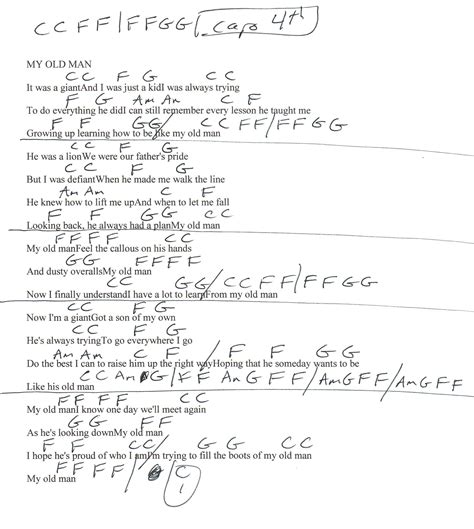 C C F F / F F G G capo 4th
MY OLD MAN
C C F G C C
It was a giantAnd I was just a kidI was always trying
F G Am Am C F
To do everything he didI can still remember every lesson he taught me
F F GG/ C C F F / F F G G
Growing up learning how to be like my old man
C C F G
He was a lionWe were our father's pride
C C F G
But I was defiantWhen he made me walk the line
Am Am C F
He knew how to lift me upAnd when to let me fall
F F G G C C
Looking back, he always had a planMy old man
F F F F C C
My old manFeel the callous on his hands
G G F F F F
And dusty overallsMy old man
C C G G / C C F F / F F G G
Now I finally understandI have a lot to learnFrom my old man
C C F G
Now I'm a giantGot a son of my own
C C F G
He's always tryingTo go everywhere I go
Am Am C F / F F G G
Do the best I can to raise him up the right wayHoping that he someday wants to be
C C Am G / F F Am G F F / Am G F F / Am G F F
Like his old man
F F F F C C
My old manI know one day we'll meet again
G G F F
As he's looking downMy old man
F F C C / G G C C
I hope he's proud of who I amI'm trying to fill the boots of my old man
F F F F / C
My old man 1